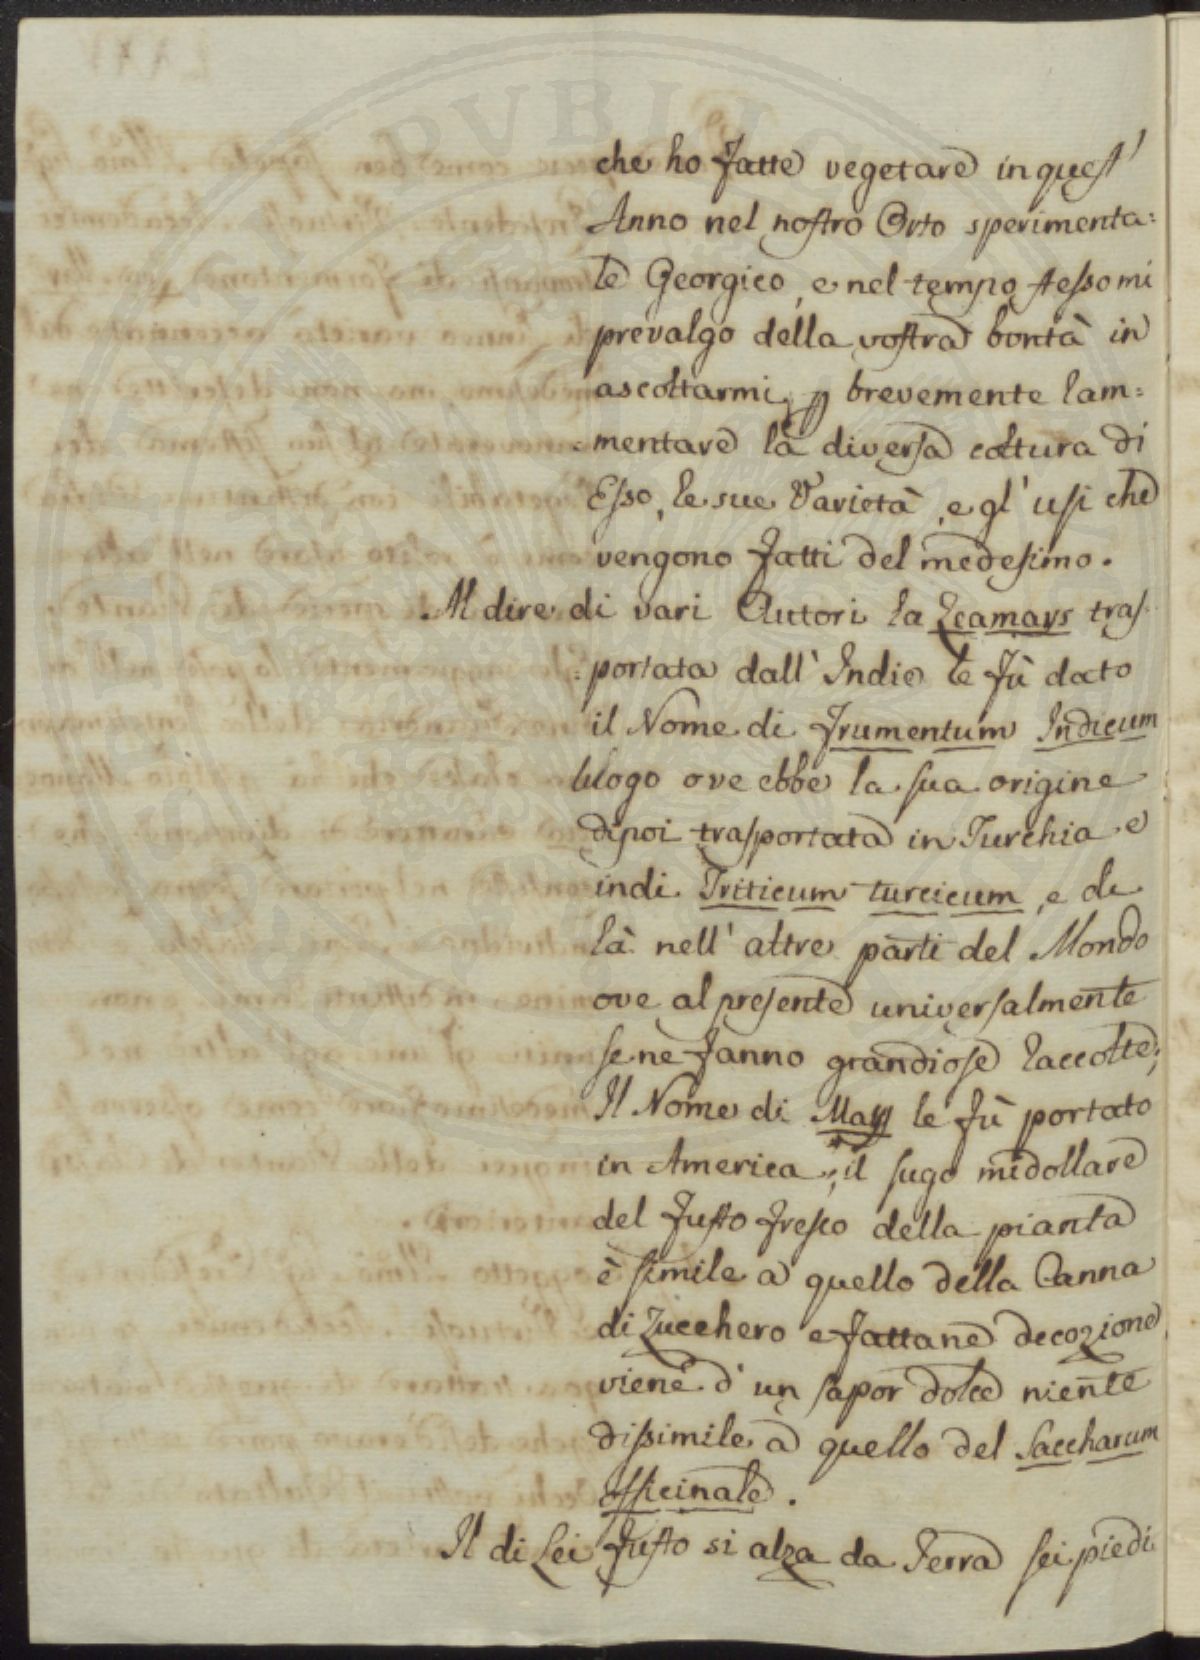 che ho fatte vegetare in quest'
Anno nel nostro Orto sperimenta=
le Georgico, e nel tempo stesso mi
prevalgo della vostra bontà in
ascoltarmi, p brevemente ram=
mentare la diversa coltura di
Esso, le sue Varietà, e gl'usi che
vengono fatti del medesimo.
Al dire di vari Autori la Zeamays tras
=portata dall'Indie le fù dato
il Nome di Frumentum Indicum
luogo ove ebbe la sua origine
dipoi trasportata in Turchia e
indi Triticum turcicum, e da
là nell'altre parti del Mondo
ove al presente universalmente
se ne fanno grandiose raccolte;
Il Nome di Mays le fù portato
in America, il sugo midollare
del fusto fresco della pianta
è simile a quello della Canna
di Zucchero e fattane decozione
viene d'un sapor dolce niente
dissimile a quello del Saccharum
officinale.
Il di Lei fusto si alza da Terra sei piedi